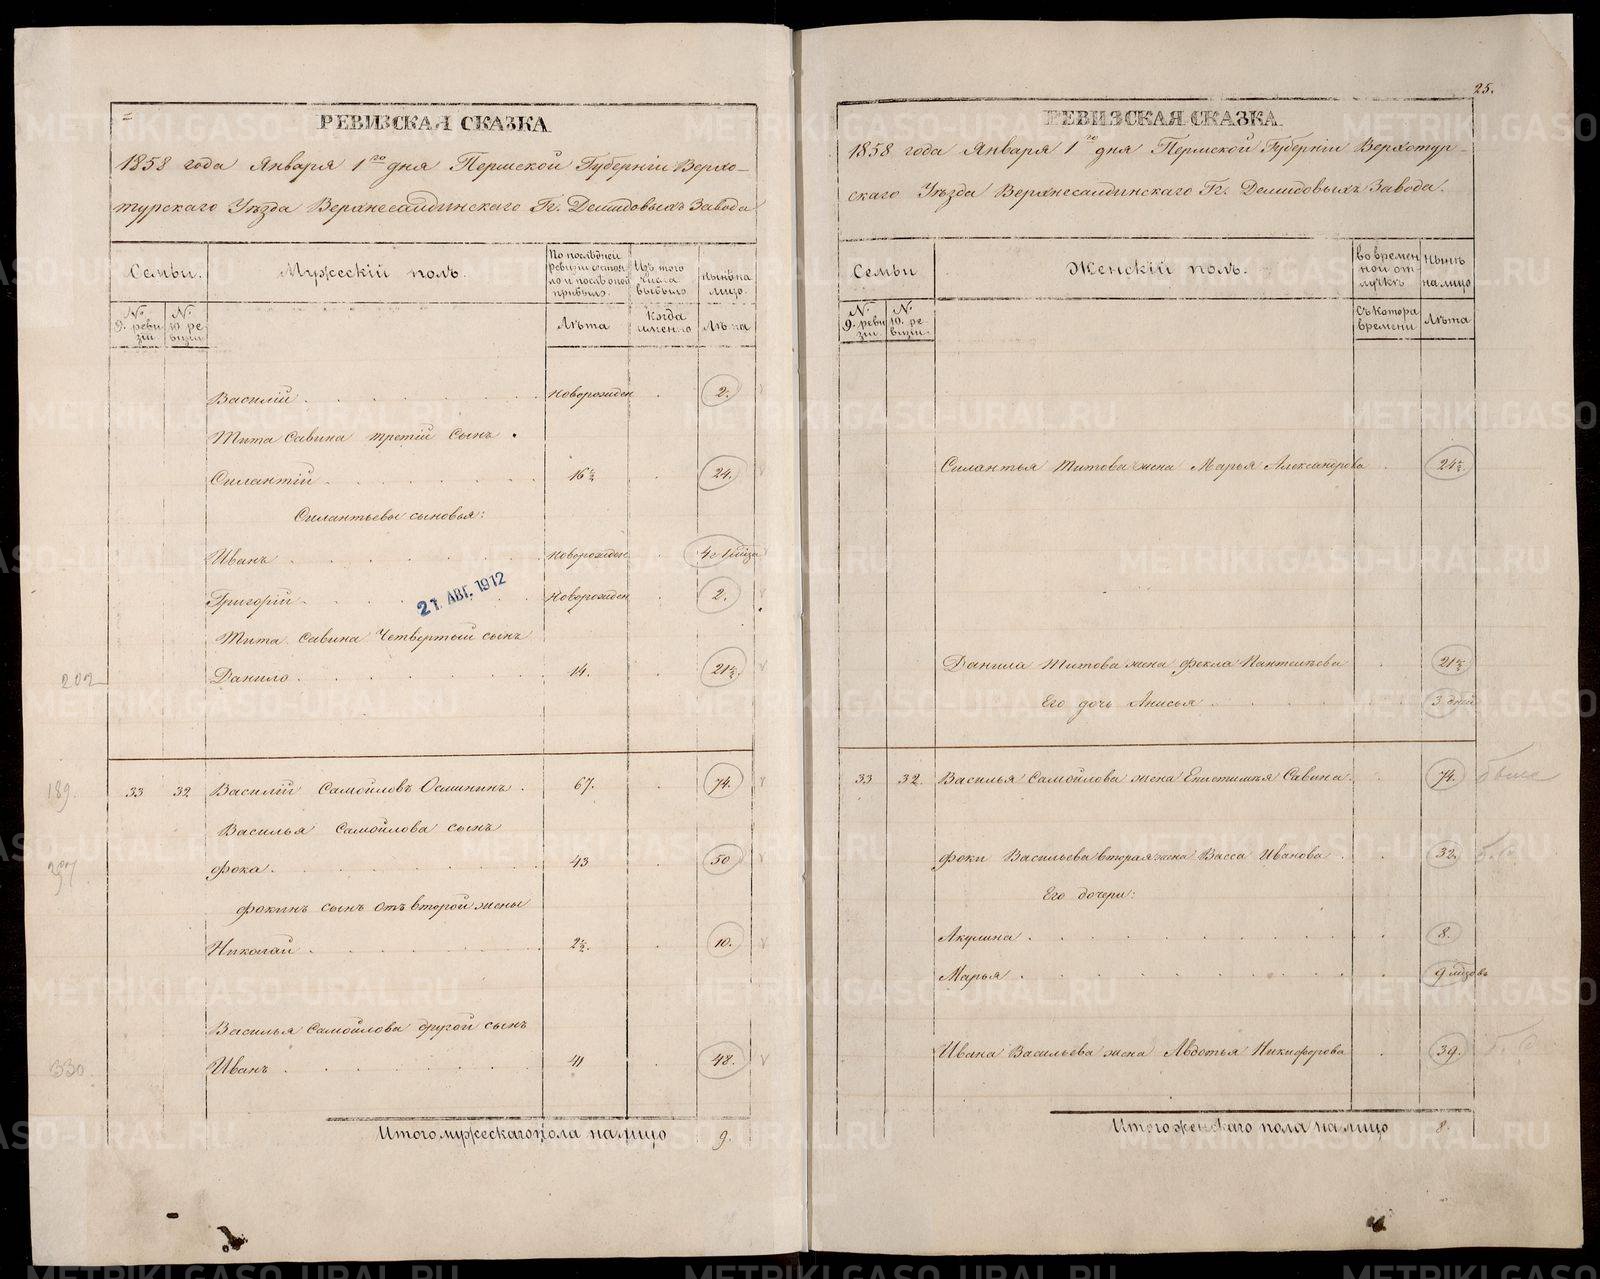 РЕВИЗСКАЯ СКАЗКА
1858 года Января 1го дня Пермской Губерніи Верхо-
турскаго Уѣзда Верхнесалдинскаго Гг. Демидовыхъ Завода
Семьи.
Мужескій полъ.
По послѣдней ревизіи состояло и послѣ оной прибыло.
Изъ того числа выбыло
нынѣ на лицо.
№ 9. ревизіи
№ 10. ревизіи
Лѣта
Когда именно
Лѣта
Василій новорожден 2.
Тита Савина третій сынъ
Силантій 16½ 24.
Силантьевы сыновья:
Иванъ новорожден
Григорій новорожден 2.
21. АВГ. 1912
Тита Савина Четвертый сынъ
202 Данило 14. 21½.
189. 33 32 Василій Самойловъ Осминин. 67. 74.
Василья Самойлова сынъ
Фока 43 50
Фокинъ сынъ отъ второй жены
Николай 2½. 10.
Василья Самойлова другой сынъ
330 Иванъ 41 48.
Итого мужескаго пола на лицо 9.
25.
РЕВИЗСКАЯ СКАЗКА
1858 года Января 1го дня Пермской Губерніи Верхотур-
скаго Уѣзда Верхнесалдинскаго Гг. Демидовыхъ Завода.
Семьи
Женскій полъ.
во временной отлучкѣ
Нынѣ на лицо
№ 9. ревизіи
№ 10. ревизіи
Съ котора времени
Лѣта
Силантья Титова жена Марья Александрова 24½.
Данила Титова жена Фекла Пантелѣева 21½
Его дочь Анисья 3 дней
33 32. Василья Самойлова жена Епистимѣя Савина. 74.
Фоки Васильева вторая жена Васса Иванова 32.
Его дочери:
Акулина 8.
Марья 9 мѣсяцовъ
Ивана Васильева жена Авдотья Никифорова 39.
Итого женскаго пола на лицо 8.
METRIKI.GASO-URAL.RU